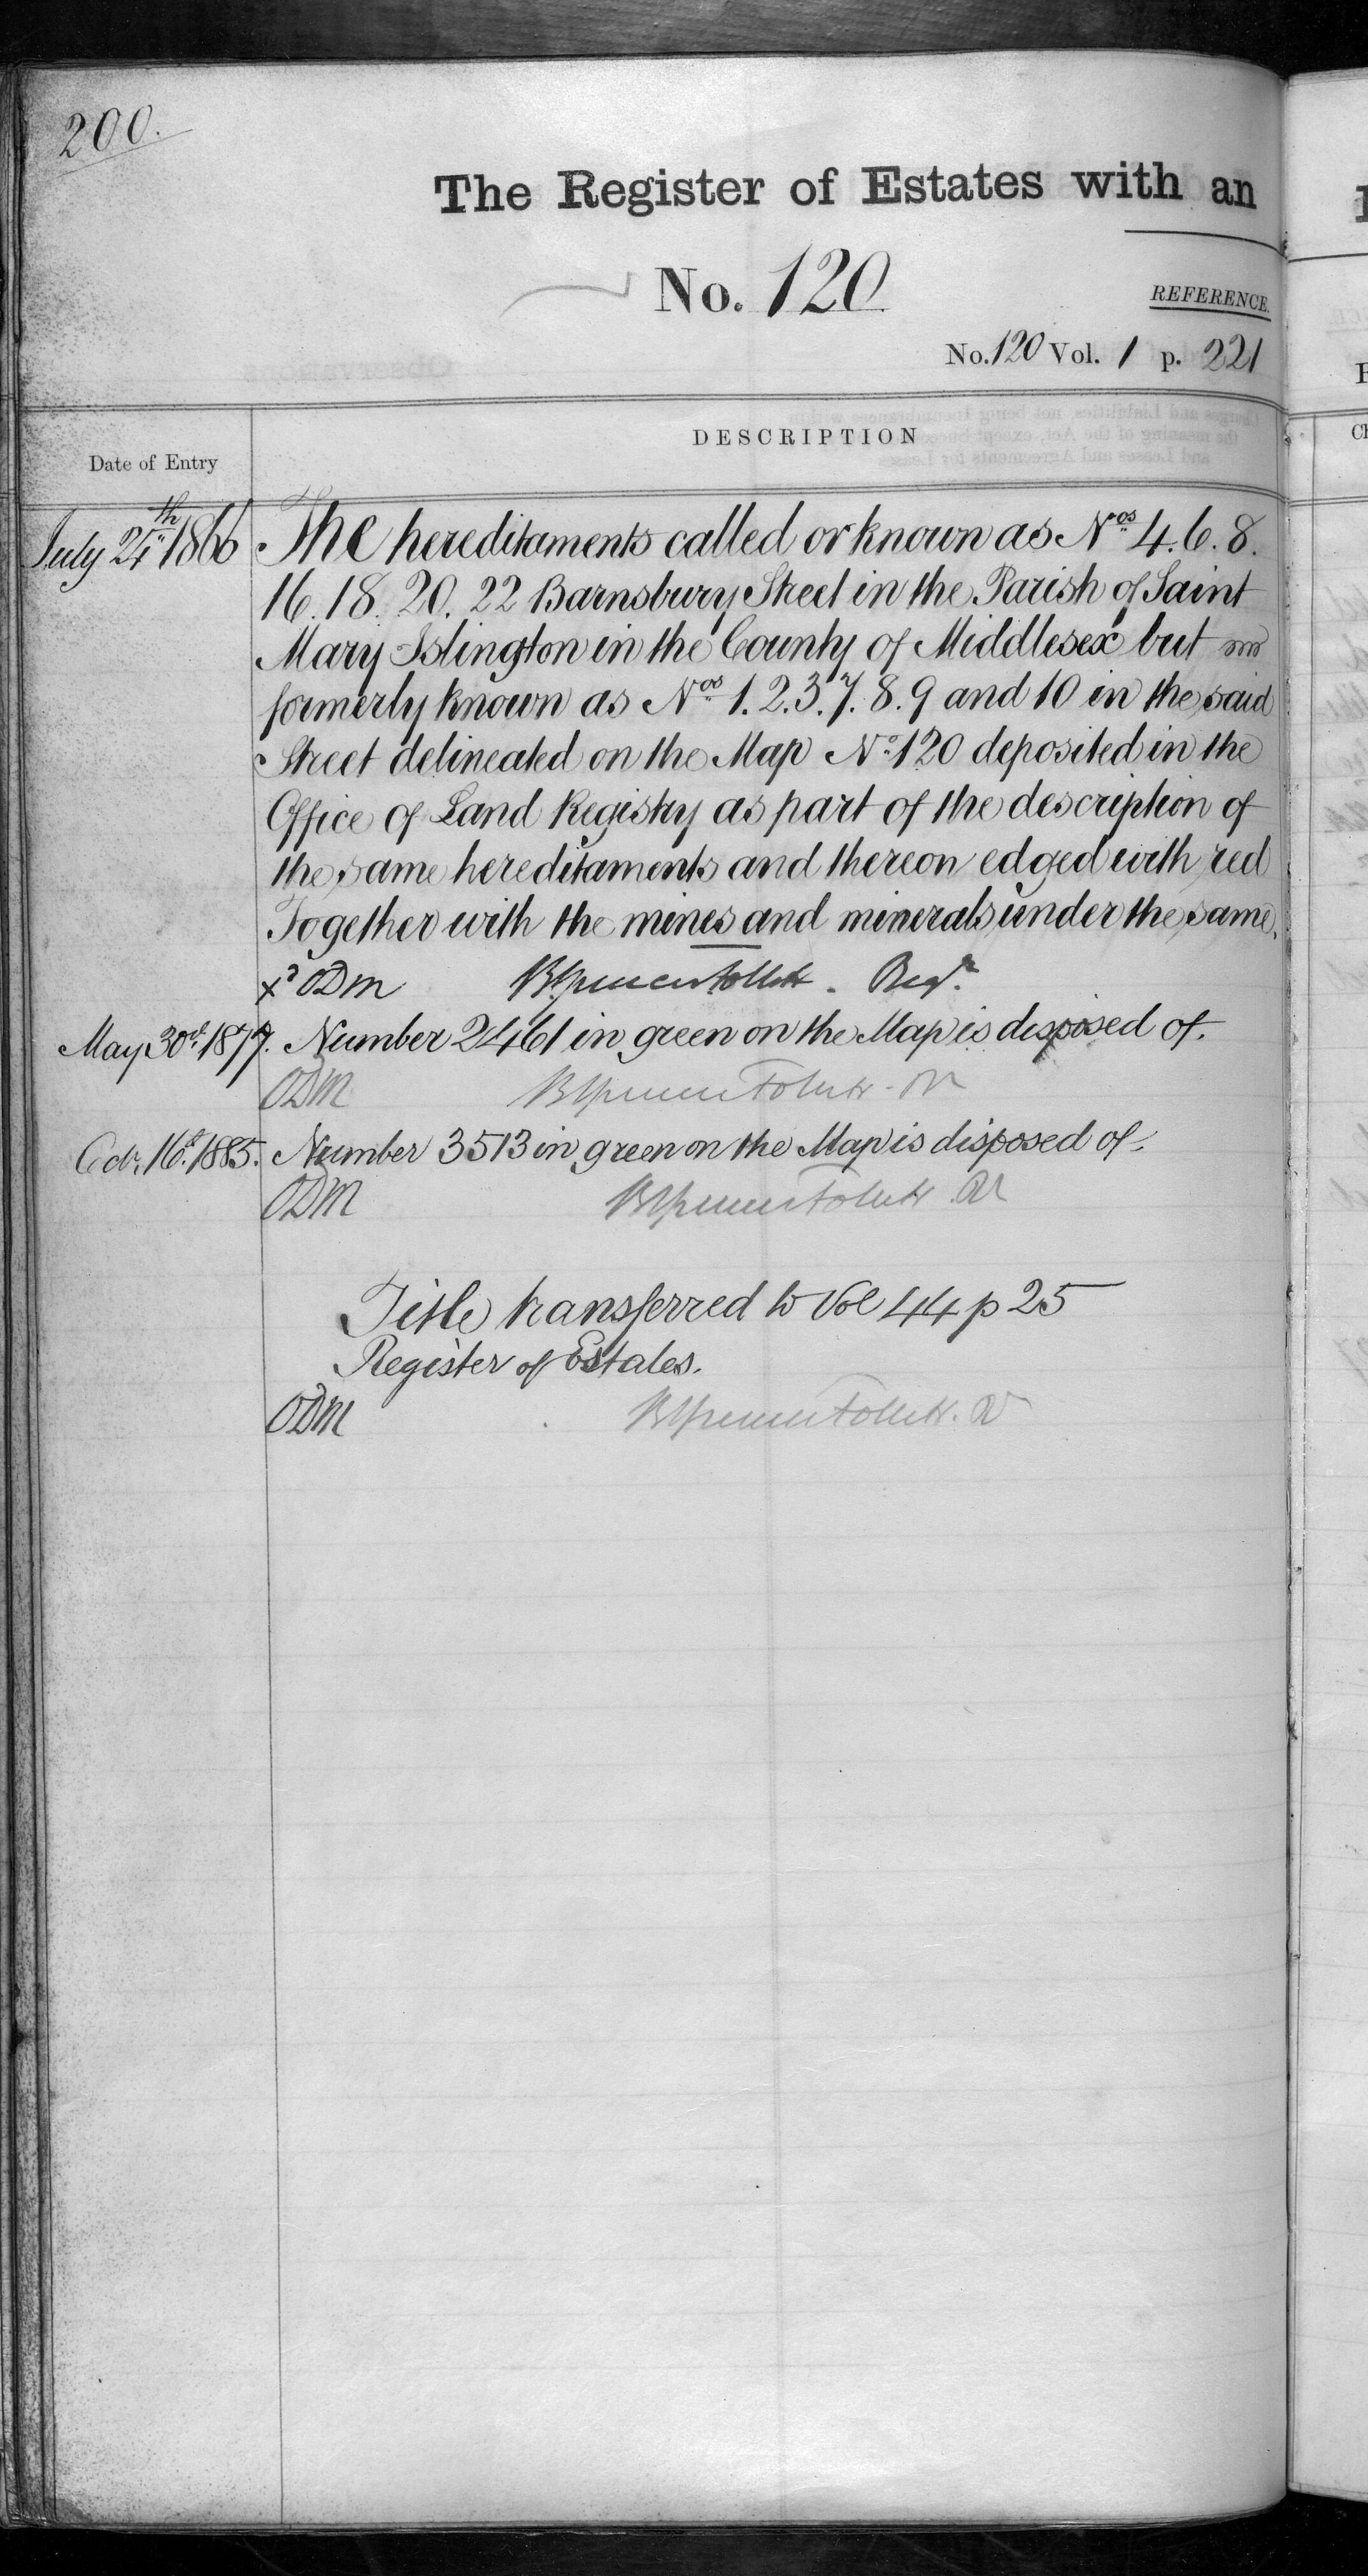 200.
The Register of Estates with an
No. 120
REFERENCE.
No. 120 Vol. 1 p. 221
DESCRIPTION
Date of Entry
July 24th 1866 The hereditaments called or known as Nos 4. 6. 8.
16. 18. 20. 22 Barnsbury Street in the Parish of Saint
Mary Islington in the County of Middlesex but
formerly known as Nos 1. 2. 3. 7. 8. 9 and 10 in the said
Street delineated on the Map No 120 deposited in the
Office of Land Registry as part of the description of
the same hereditaments and thereon edged with red
Together with the mines and minerals under the same.
xd ODM Brent Spencer Follett. Regr.
May 30th 1877. Number 2461 in green on the Map is disposed of.
ODM
Octr. 16th 1885. Number 3513 in green on the Map is disposed of.
ODM
Title transferred to Vol 44 p 25
Register of Estates.
ODM